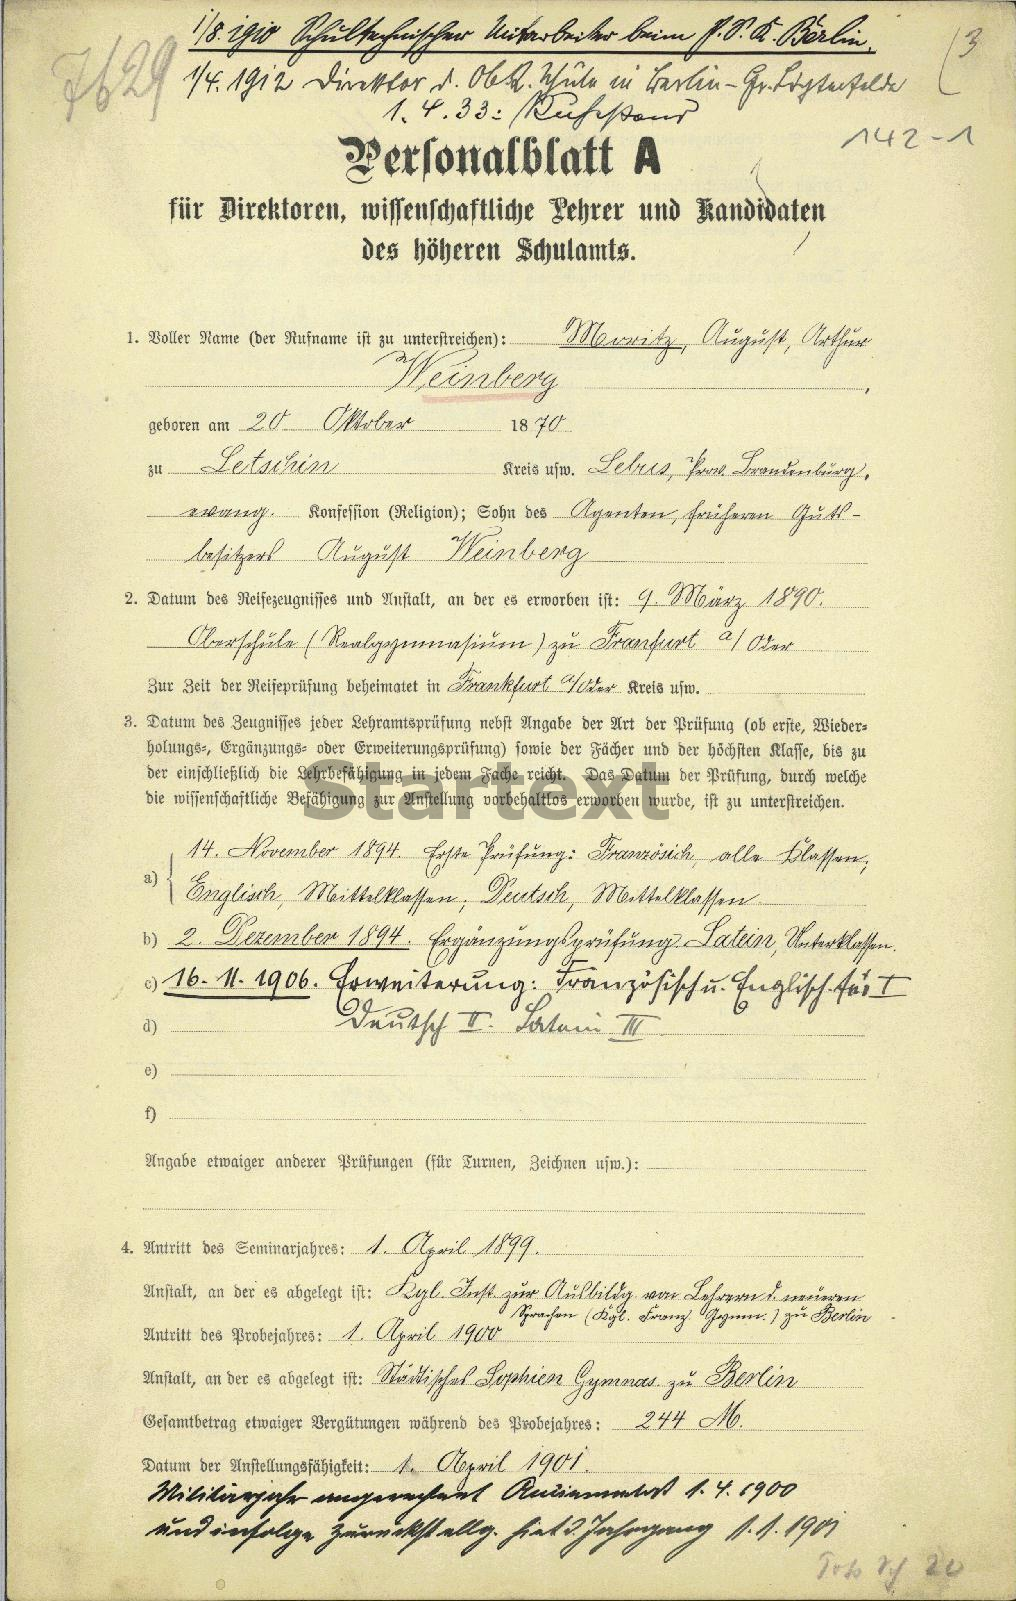 7629
1/8. 1910 Schultechnischer Mitarbeiter beim P. S. K. Berlin.
(3
1/4. 1912 Direktor d. Ob. R. Schule in Berlin - Gr. Lichterfelde
1. 4. 33: Ruhestand
142-1
Personalblatt A
für Direktoren, wissenschaftliche Lehrer und Kandidaten
des höheren Schulamts.
1. Voller Name (der Rufname ist zu unterstreichen): Moritz, August, Arthur
Weinberg,
geboren am 20 Oktober 1870
zu Letschin Kreis usw. Lebus, Prov. Brandenburg,
evang. Konfession (Religion); Sohn des Agenten, früheren Guts-
besitzers August Weinberg
2. Datum des Reifezeugnisses und Anstalt, an der es erworben ist: 9. März 1890.
Oberschule (Realgymnasium) zu Frankfurt a/ Oder
Zur Zeit der Reifeprüfung beheimatet in Frankfurt a/Oder Kreis usw.
3. Datum des Zeugnisses jeder Lehramtsprüfung nebst Angabe der Art der Prüfung (ob erste, Wieder-
holungs-, Ergänzungs- oder Erweiterungsprüfung) sowie der Fächer und der höchsten Klasse, bis zu
der einschließlich die Lehrbefähigung in jedem Fache reicht. Das Datum der Prüfung, durch welche
die wissenschaftliche Befähigung zur Anstellung vorbehaltlos erworben wurde, ist zu unterstreichen.
Startext
a) 14. November 1894. Erste Prüfung: Französisch, alle Klassen;
Englisch, Mittelklassen; Deutsch, Mittelklassen
b) 2. Dezember 1894. Ergänzungsprüfung Latein, Unterklassen.
c) 16. 11. 1906. Erweiterung: Französisch u. Englisch für I
d) Deutsch II. Latein III
e)
f)
Angabe etwaiger anderer Prüfungen (für Turnen, Zeichnen usw.):
4. Antritt des Seminarjahres: 1. April 1899.
Anstalt, an der es abgelegt ist: Kgl. Inst. zur Ausbildg. von Lehrern d. neueren
Sprachen (Kgl. Franz. Gymn.) zu Berlin
Antritt des Probejahres: 1. April 1900
Anstalt, an der es abgelegt ist: Städtisches Sophien Gymnas. zu Berlin
Gesamtbetrag etwaiger Vergütungen während des Probejahres: 244 M.
Datum der Anstellungsfähigkeit: 1. April 1901.
Militärjahr angerechnet 1. 4. 1900
und infolge Zurückstellg. Jahrgang 1. 1. 1901